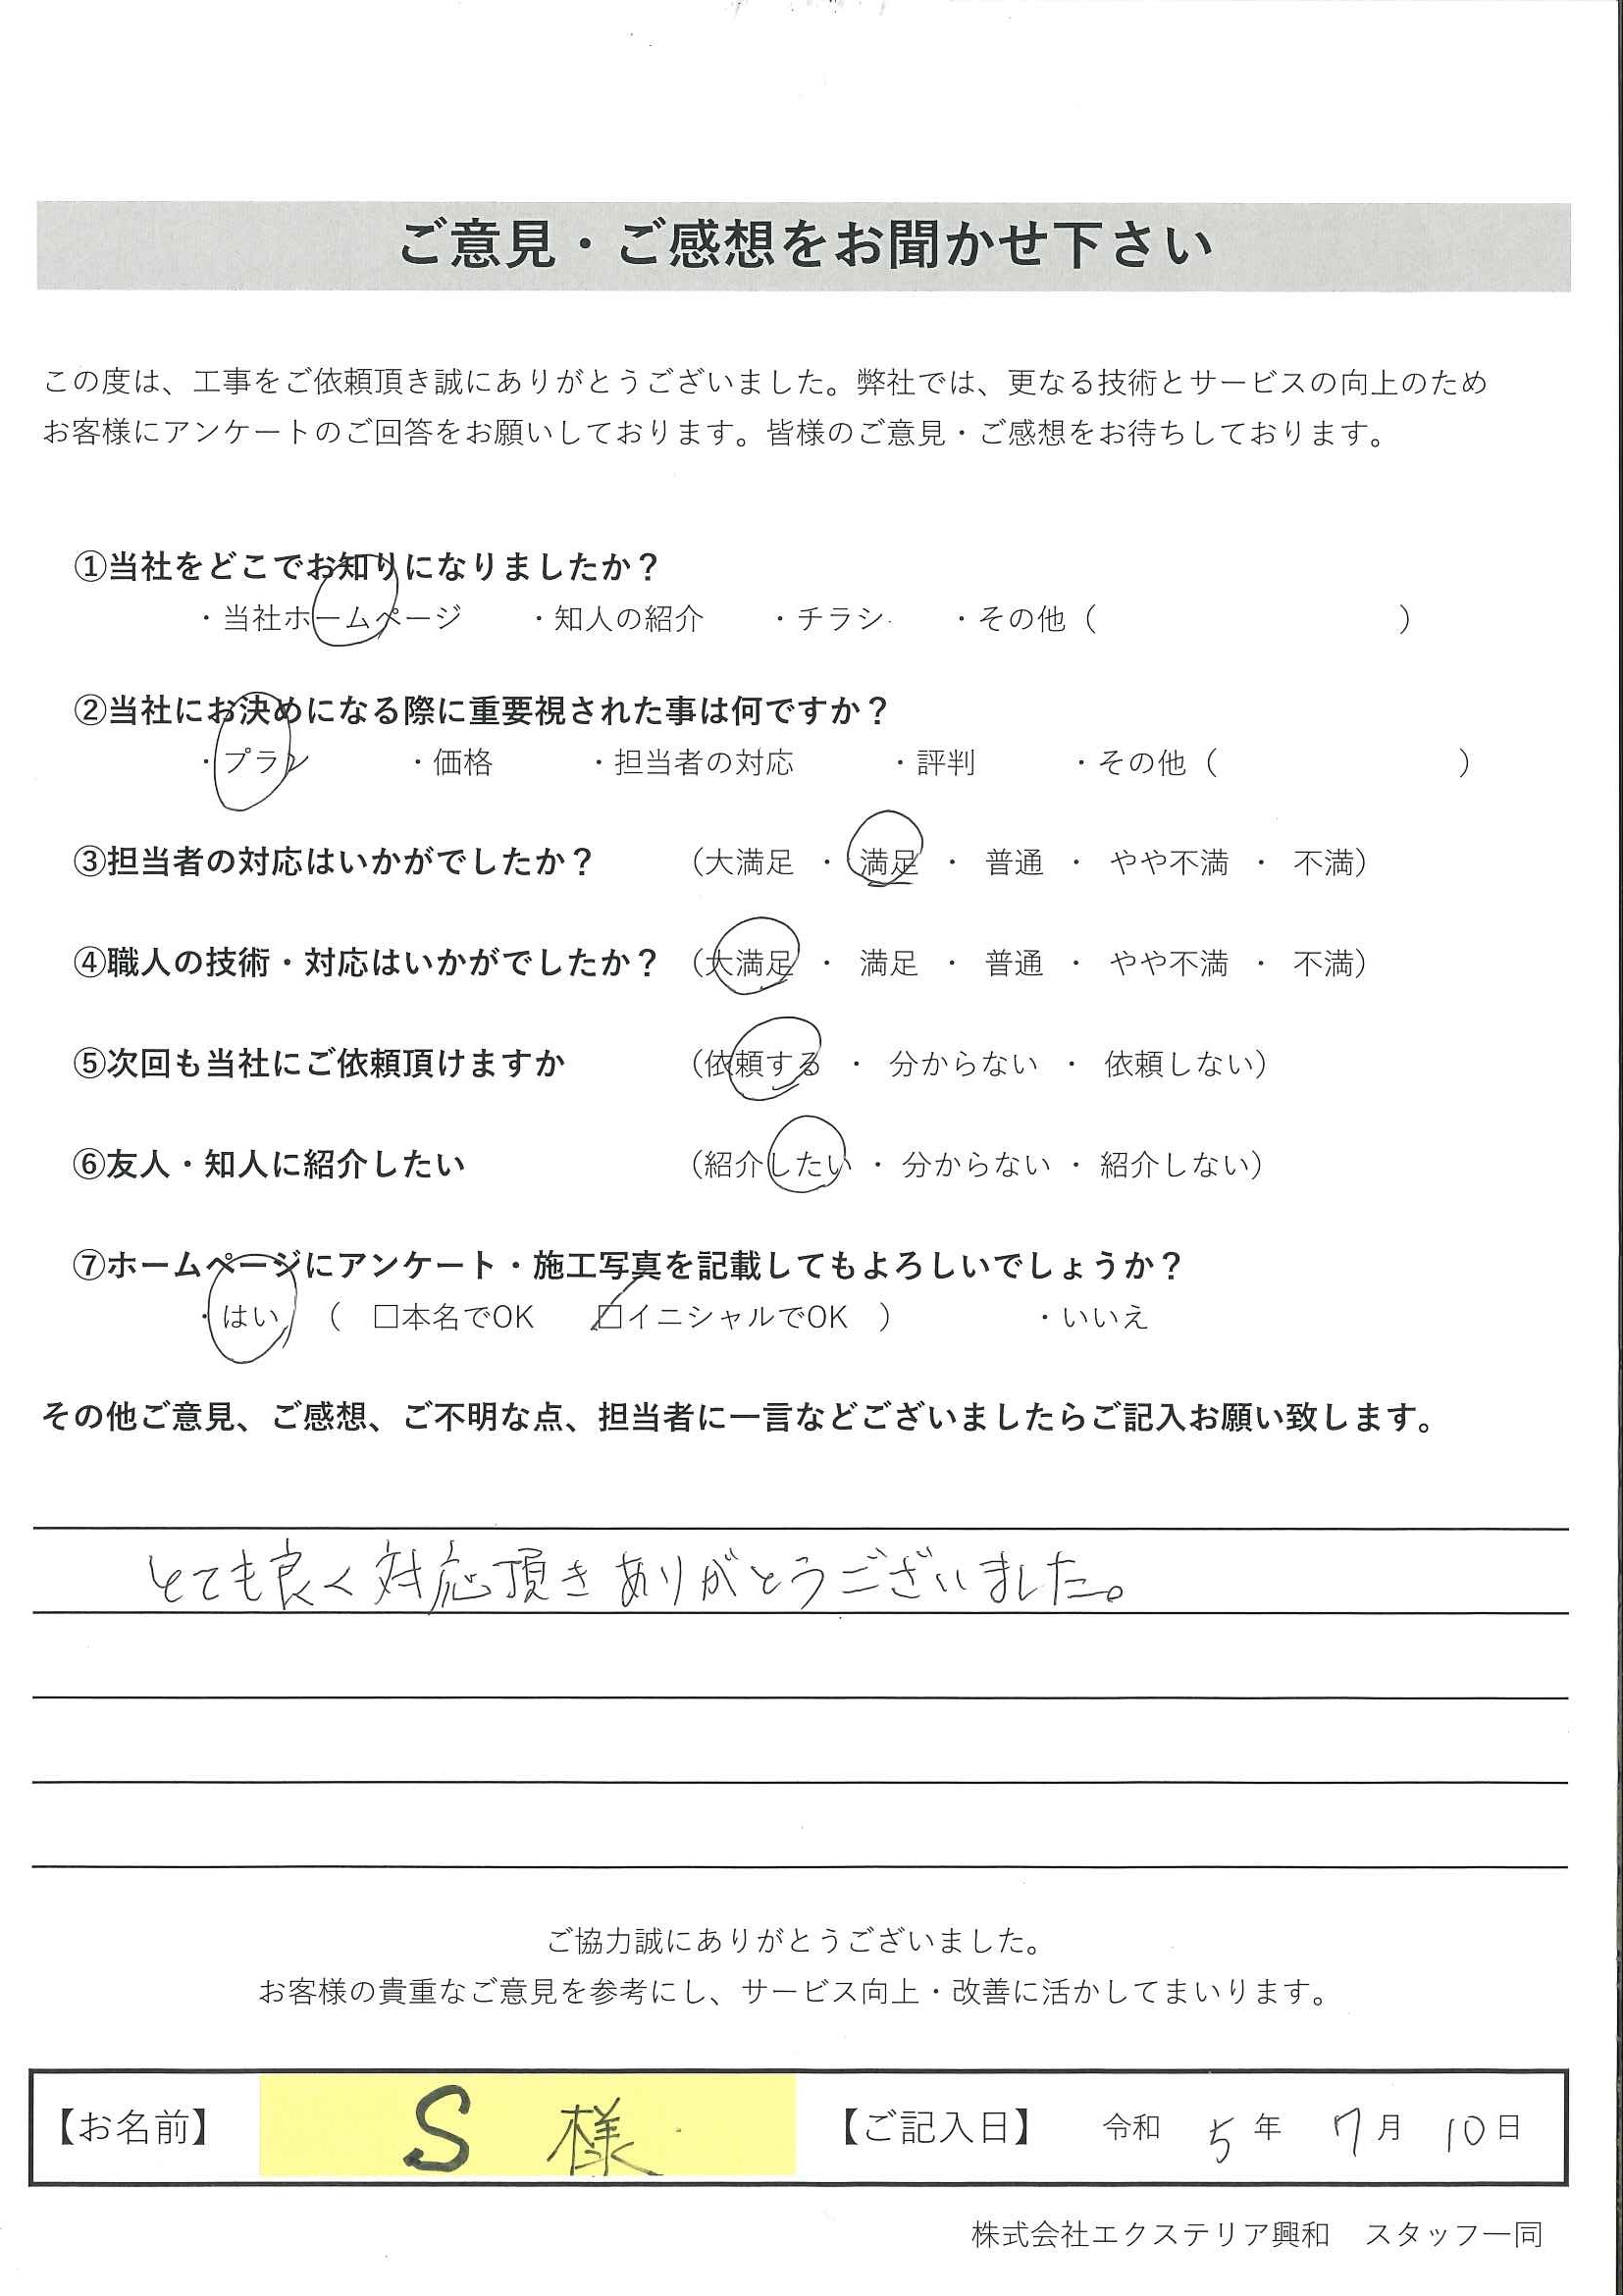 ご意見・ご感想をお聞かせ下さい
この度は、工事をご依頼頂き誠にありがとうございました。弊社では、更なる技術とサービスの向上のため
お客様にアンケートのご回答をお願いしております。皆様のご意見・ご感想をお待ちしております。
①当社をどこでお知りになりましたか？
・当社ホームページ ・知人の紹介 ・チラシ ・その他（ ）
②当社にお決めになる際に重要視された事は何ですか？
・プラン ・価格 ・担当者の対応 ・評判 ・その他（ ）
③担当者の対応はいかがでしたか？ （大満足 ・ 満足 ・ 普通 ・ やや不満 ・ 不満）
④職人の技術・対応はいかがでしたか？ （大満足 ・ 満足 ・ 普通 ・ やや不満 ・ 不満）
⑤次回も当社にご依頼頂けますか （依頼する ・ 分からない ・ 依頼しない）
⑥友人・知人に紹介したい （紹介したい ・ 分からない ・ 紹介しない）
⑦ホームページにアンケート・施工写真を記載してもよろしいでしょうか？
・はい （ □本名でOK □イニシャルでOK ） ・いいえ
その他ご意見、ご感想、ご不明な点、担当者に一言などございましたらご記入お願い致します。
とても良く対応頂きありがとうございました。
ご協力誠にありがとうございました。
お客様の貴重なご意見を参考にし、サービス向上・改善に活かしてまいります。
【お名前】 S 様 【ご記入日】 令和 5 年 7 月 10 日
株式会社エクステリア興和 スタッフ一同